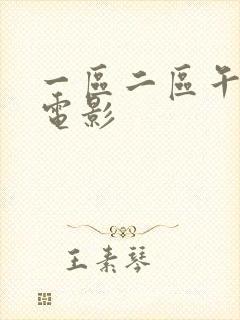 一區二區午
電影
王素琴